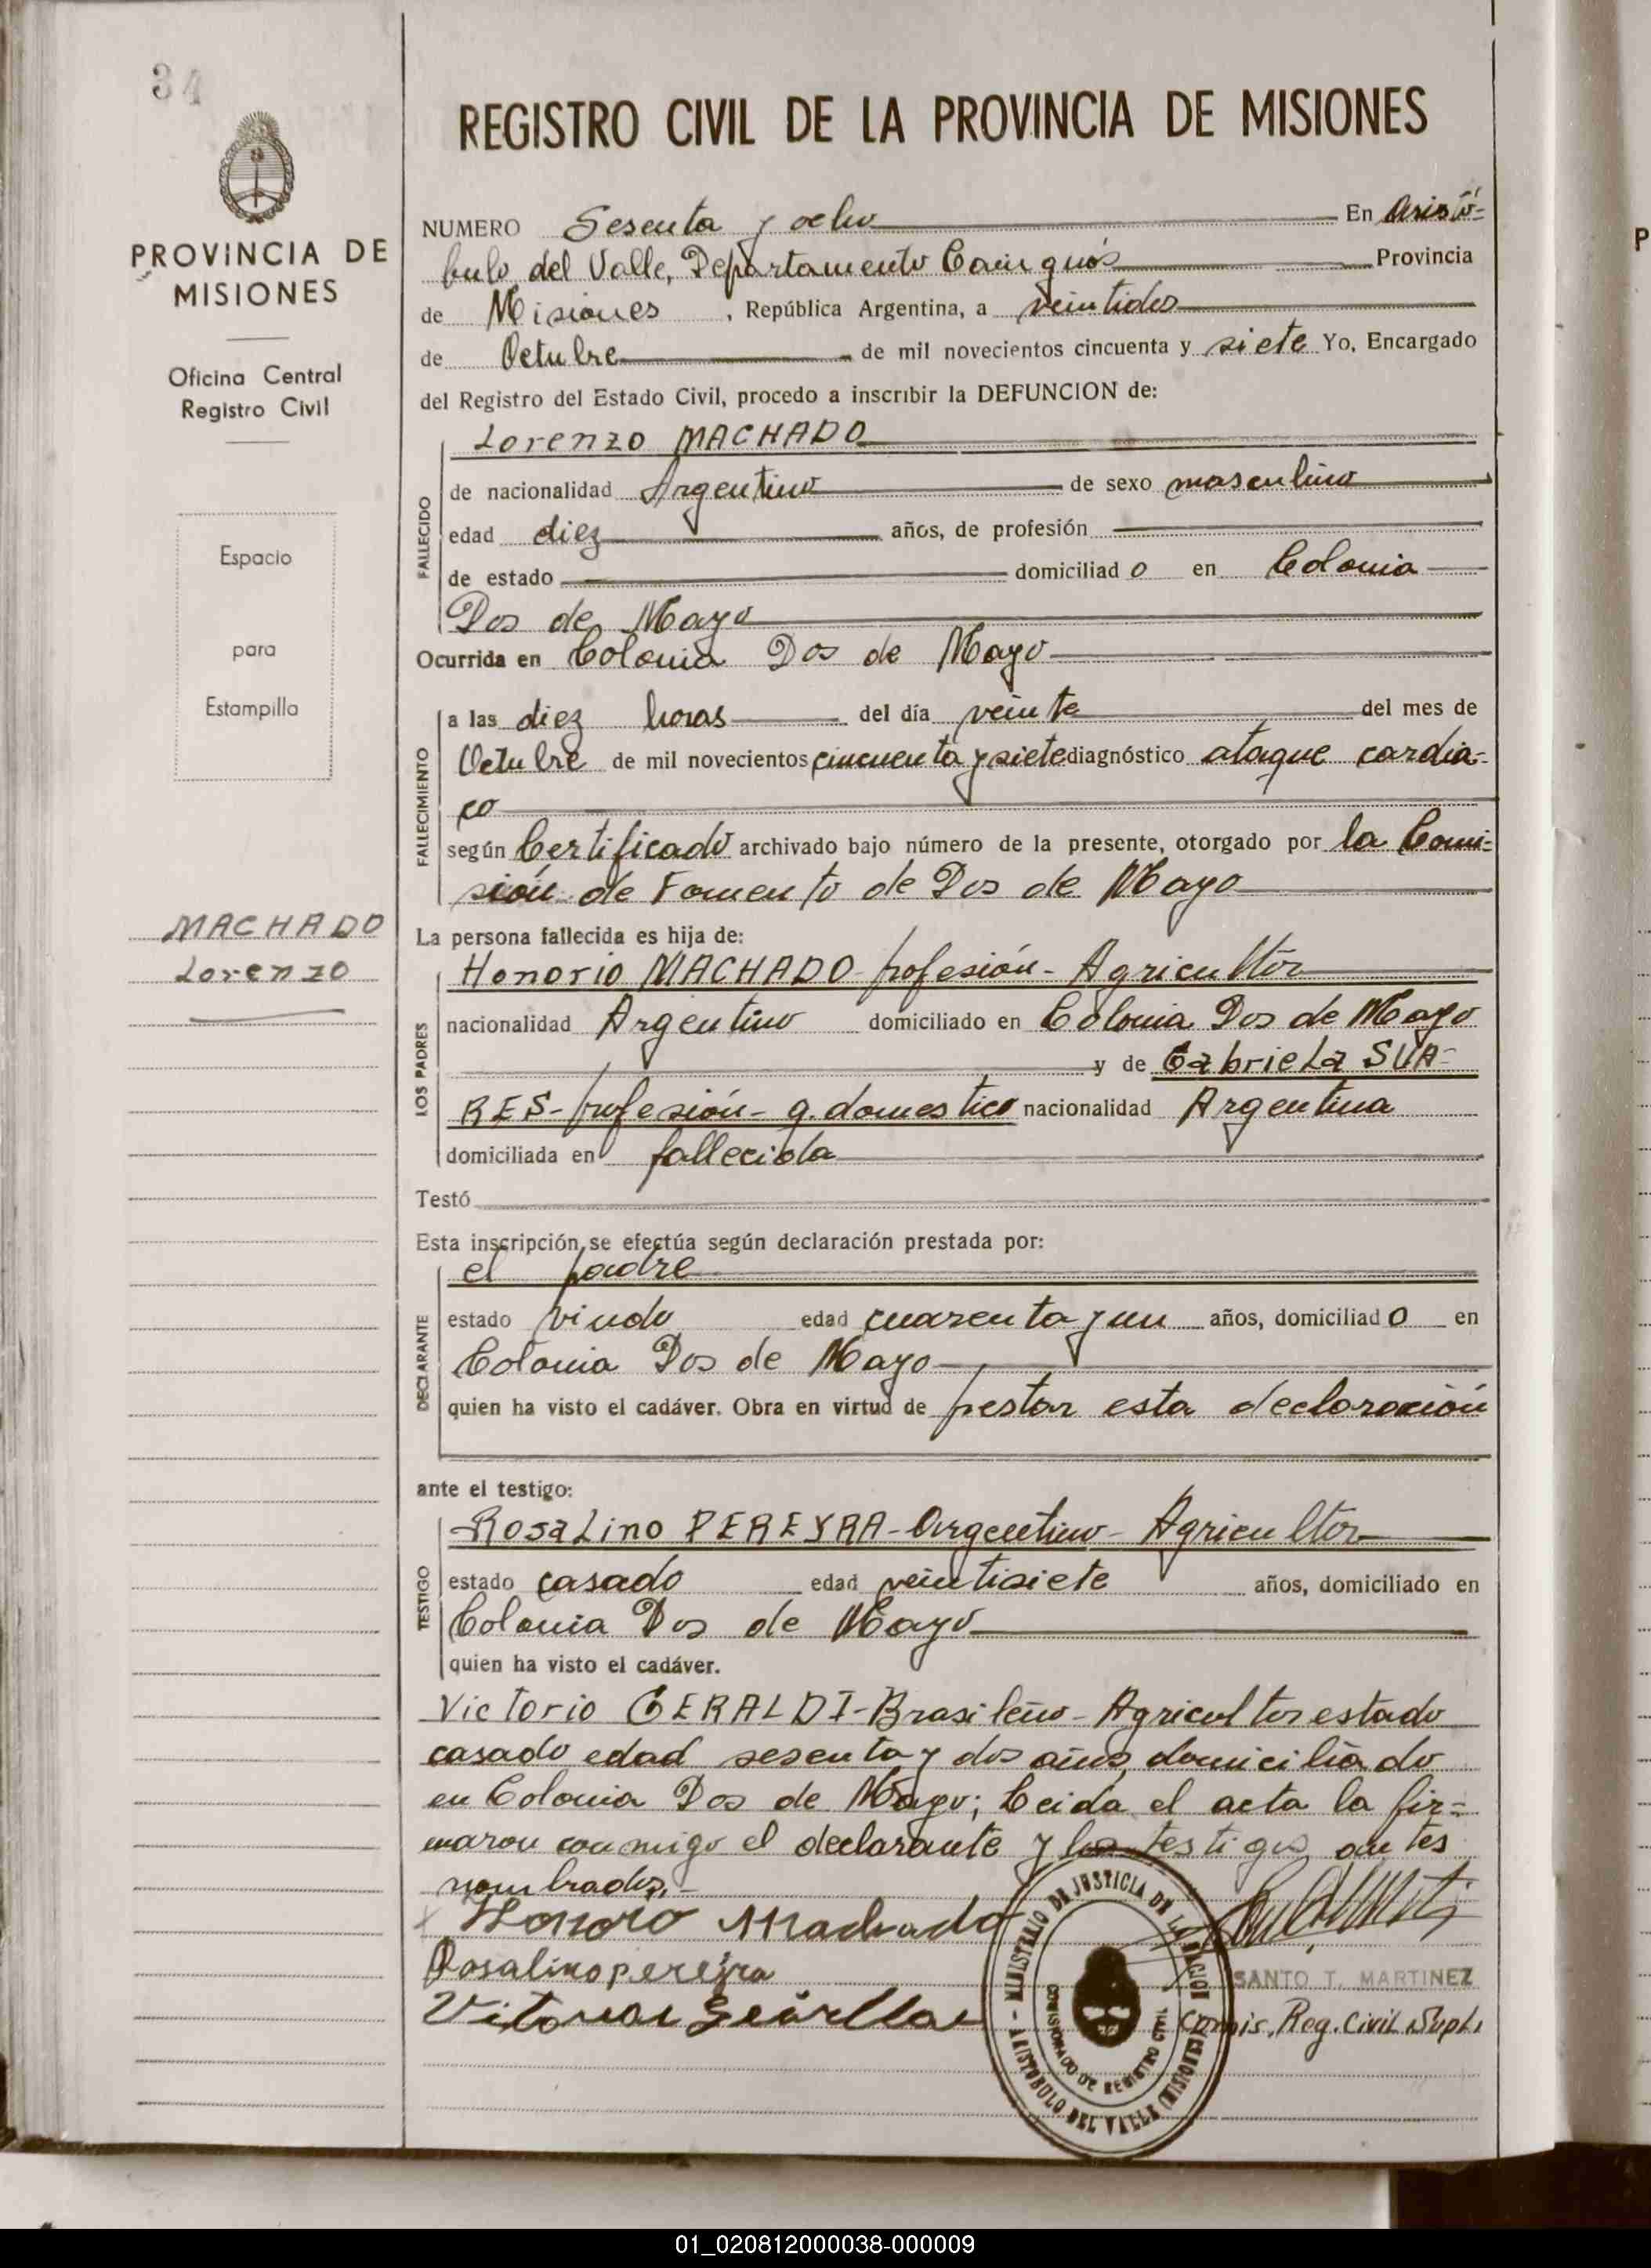 34
PROVINCIA DE
MISIONES
Oficina Central
Registro Civil
Espacio
para
Estampilla
MACHADO
Lorenzo
REGISTRO CIVIL DE LA PROVINCIA DE MISIONES
NUMERO Sesenta y ocho En Aristó=
bulo del Valle, Departamento Cainguás Provincia
de Misiones, República Argentina, a veintidos
de Octubre de mil novecientos cincuenta y siete Yo, Encargado
del Registro del Estado Civil, procedo a inscribir la DEFUNCION de:
Lorenzo MACHADO
FALLECIDO
de nacionalidad Argentino de sexo masculino
edad diez años, de profesión
de estado domiciliado en Colonia
Dos de Mayo
Ocurrida en Colonia Dos de Mayo
FALLECIMIENTO
a las diez horas del día veinte del mes de
Octubre de mil novecientos cincuenta y siete diagnóstico ataque cardia=
co
según Certificado archivado bajo número de la presente, otorgado por la Comi=
sión de Fomento de Dos de Mayo
La persona fallecida es hija de:
LOS PADRES
Honorio MACHADO profesión - Agricultor
nacionalidad Argentino domiciliado en Colonia Dos de Mayo
y de Gabriela SUA-
RES - profesión - q. domestico nacionalidad Argentina
domiciliada en fallecida
Testó
Esta inscripción se efectúa según declaración prestada por:
DECLARANTE
el padre
estado viudo edad cuarenta y un años, domiciliado en
Colonia Dos de Mayo
quien ha visto el cadáver. Obra en virtud de prestar esta declaración
ante el testigo:
TESTIGO
Rosalino PEREYRA - Argentino - Agricultor
estado casado edad veintisiete años, domiciliado en
Colonia Dos de Mayo
quien ha visto el cadáver.
Victorio GERALDI - Brasileño - Agricultor estado
casado edad sesenta y dos años, domiciliado
en Colonia Dos de Mayo; Leida el acta la fir=
maron conmigo el declarante y los testigos antes
nombrados.-
Honoro Machado
Rosalino pereyra
MINISTERIO DE JUSTICIA DE LA NACION
COMISIONADO DE REGISTRO CIVIL
ARISTOBULO DEL VALLE (MISIONES)
SANTO T. MARTINEZ
Comis. Reg. Civil Supl.
01_020812000038-000009